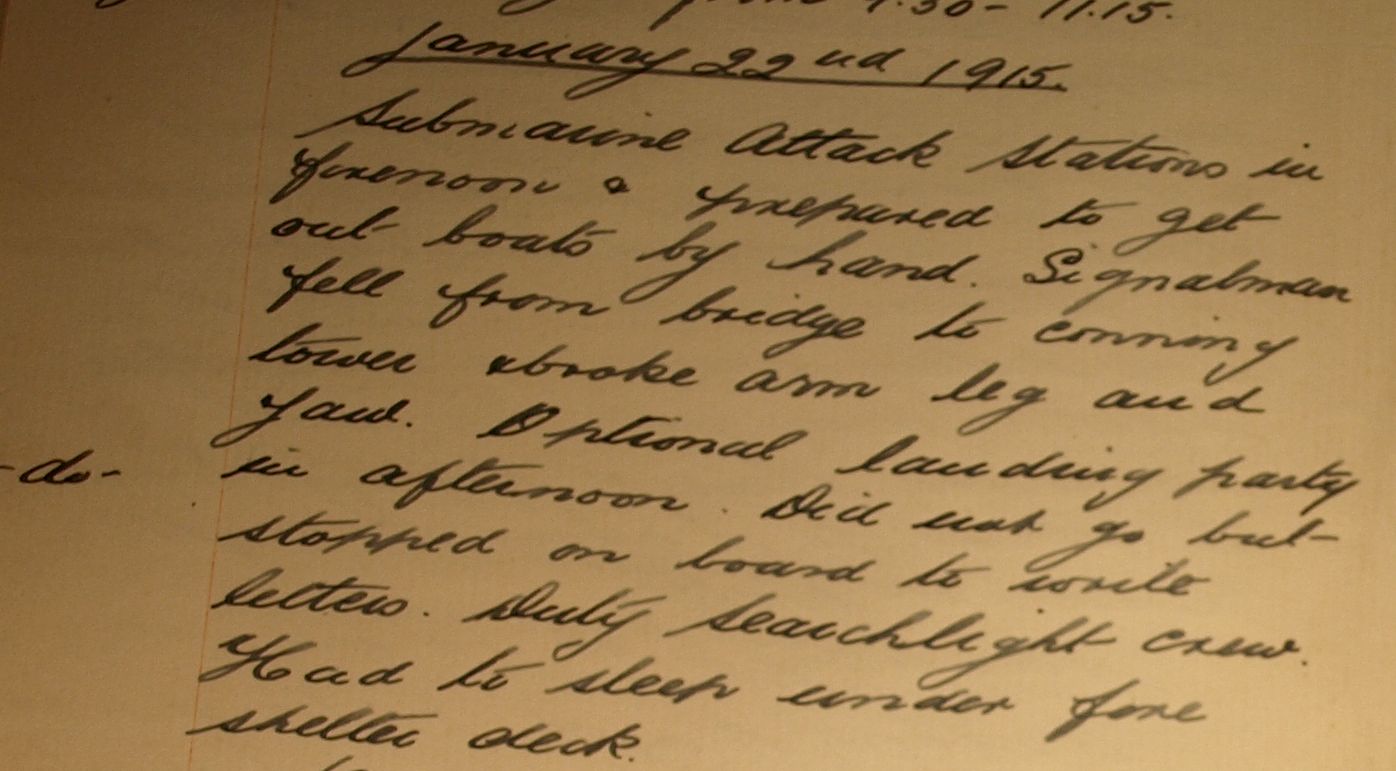 9.30 - 11.15.
January 22nd 1915.
Submarine Attack Stations in
forenoon & prepared to get
out boats by hand. Signalman
fell from bridge to conning
tower & broke arm leg and
jaw. Optional landing party
-do- in afternoon. Did not go but
stopped on board to write
letters. Duty Searchlight crew.
Had to sleep under fore
shelter deck.